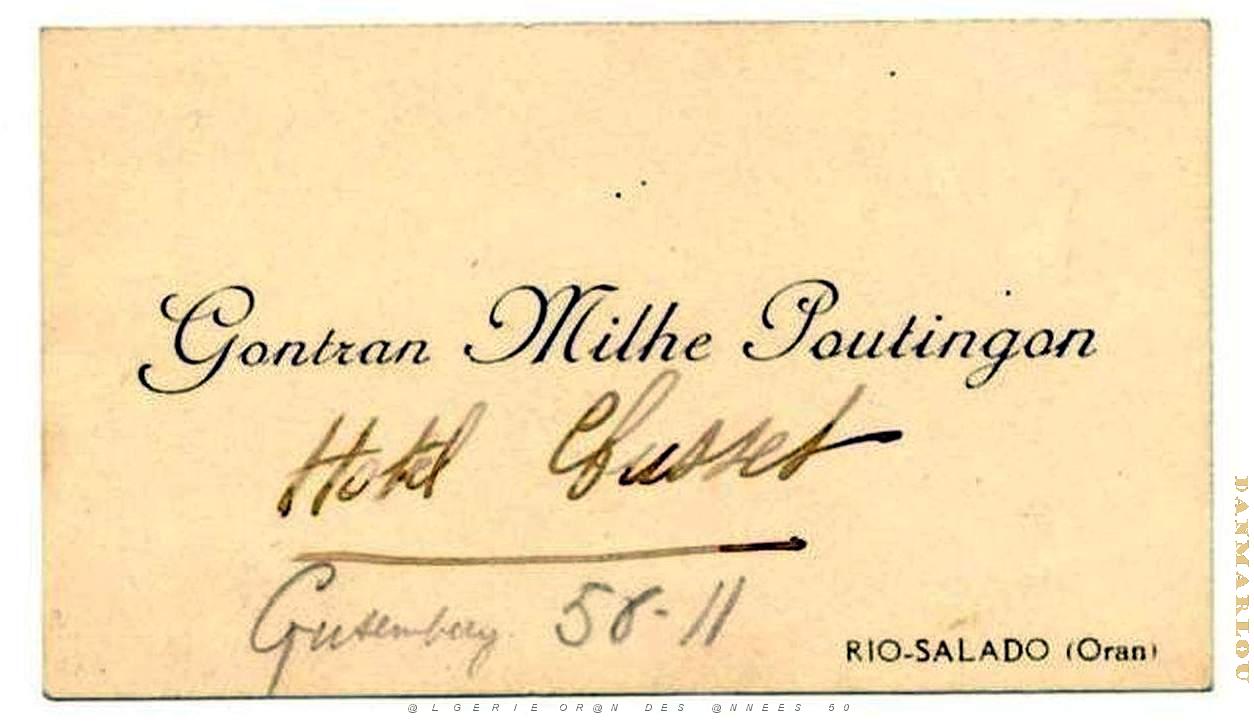 Gontran Milhe Poutingon
Hotel
Gutemberg 58-11
RIO-SALADO (Oran)
@LGERIE OR@N DES @NNEES 50
DANMARLOU